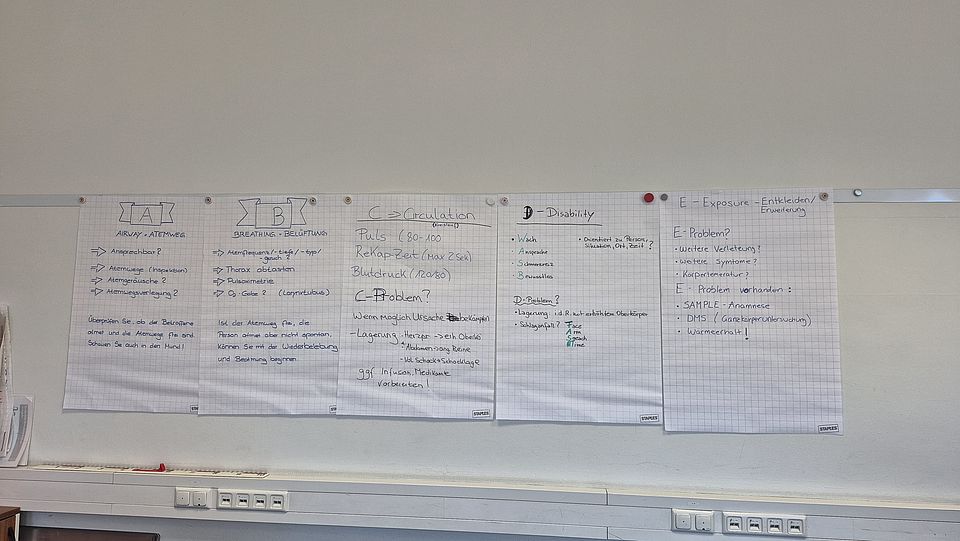 A
AIRWAY - ATEMWEG
Ansprechbar?
Atemwege (Inspektion)
Atemgeräusche?
Atemwegsverlegung?
Überprüfen Sie, ob der Betroffene
atmet und die Atemwege frei sind.
Schauen Sie auch in den Mund!
B
BREATHING - BELÜFTUNG
Atemfrequenz/-tiefe/-typ/
-geruch?
Thorax abtasten
Pulsoximetrie
O2-Gabe? (Larynxtubus)
Ist der Atemweg frei, die
Person atmet aber nicht spontan,
können Sie mit der Wiederbelebung
und Beatmung beginnen.
C => Circulation
Puls (80-100
ReKap-Zeit (Max 2 sek)
Blutdruck (120/80)
C-Problem?
Wenn möglich Ursache bekämpfen
- Lagerung: Herzpr -> erh Oberkö
Abdomen -> ang Beine
Vol Schock -> Schocklage
ggf Infusion, Medikamte
Vorbereiten!
STAPLES
D - Disability
• Wach
• Ansprache
• Schmerzreiz
• Bewusstlos
• Orientiert zu Person,
Situation, Ort, Zeit?
D-Problem?
• Lagerung i.d.R. mit erhöhtem Oberkörper
• Schlaganfall? Face
Arm
Sprach
Time
STAPLES
E - Exposure - Entkleiden/
Erweiterung
E-Problem?
• Weitere Verletzung?
• weitere Symtome?
• Körpertemeratur?
E - Problem vorhanden:
• SAMPLE - Anamnese
• DMS (Ganzkörperuntersuchung)
• Wärmeerhalt!
STAPLES